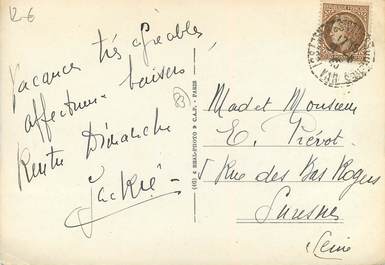 R-6
Vacances très agréables
affectueux baisers
Rentre Dimanche
Jackie
83
(02) 6 REAL-PHOTO C.A.P. - PARIS
Mad et Monsieur
E. Prévot
5 Rue des Bas Rogers
Suresnes
Seine